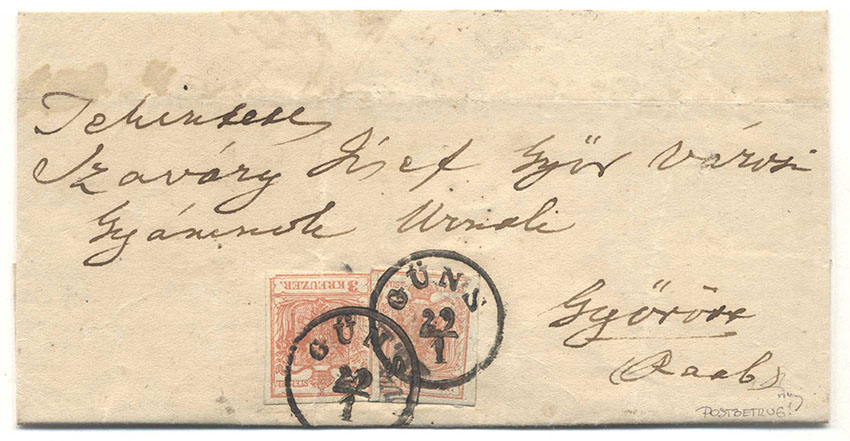 Tekintetes
Szaváry Jósef Győr Városi
Gyámnok Urnak
3 KREUZER.
GÜNS
22
1
GÜNS
22
1
Győrött
Raab
POSTBETRUG!